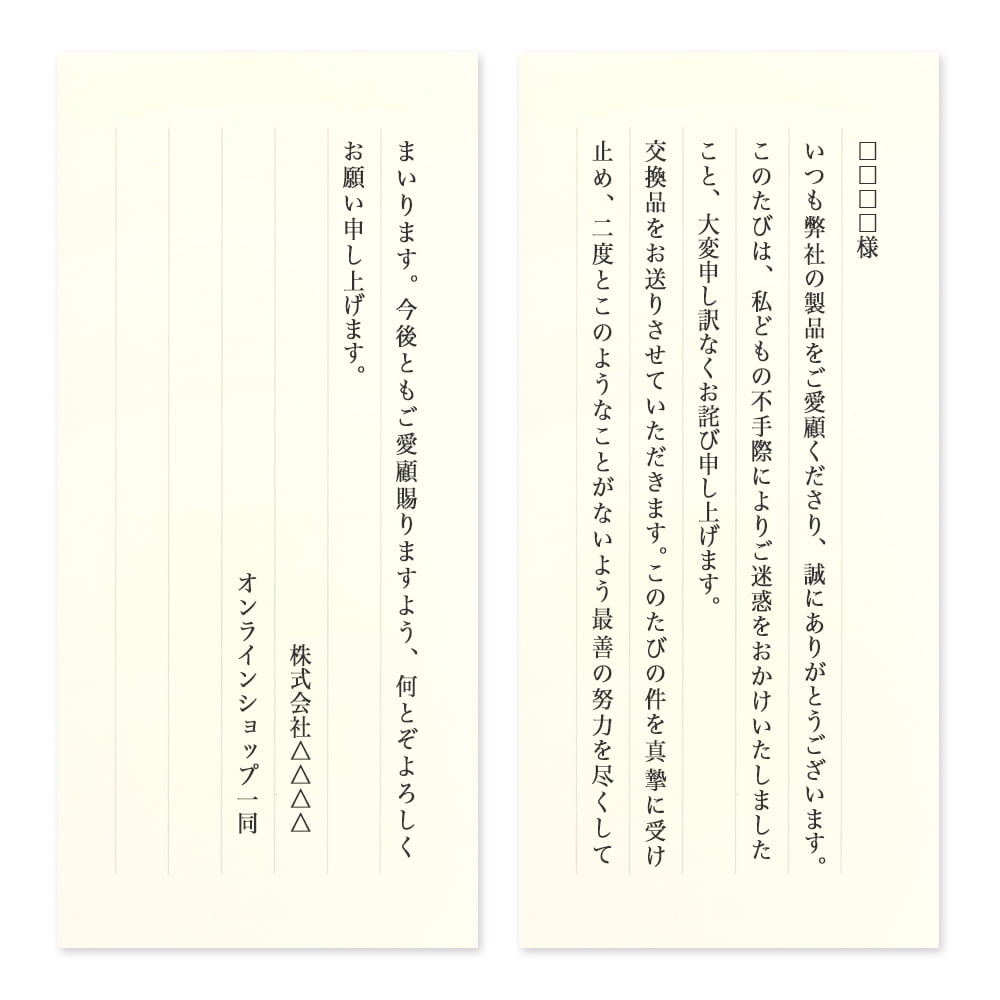 □□□□様
いつも弊社の製品をご愛顧くださり、誠にありがとうございます。
このたびは、私どもの不手際によりご迷惑をおかけいたしました
こと、大変申し訳なくお詫び申し上げます。
交換品をお送りさせていただきます。このたびの件を真摯に受け
止め、二度とこのようなことがないよう最善の努力を尽くして
まいります。今後ともご愛顧賜りますよう、何とぞよろしく
お願い申し上げます。
株式会社△△△△
オンラインショップ一同